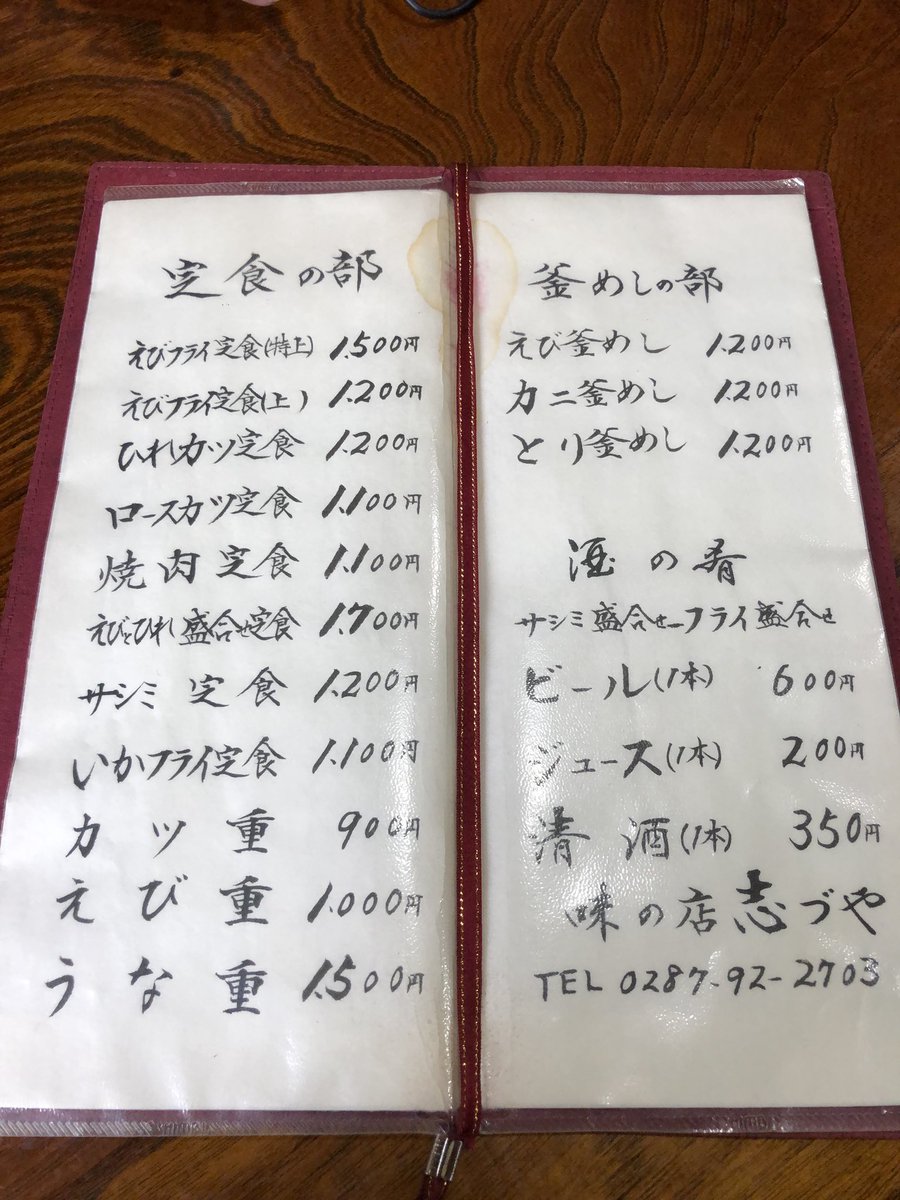 定食の部
えびフライ定食(特上) 1.500円
えびフライ定食(上) 1.200円
ひれカツ定食 1.200円
ロースカツ定食 1.100円
焼肉定食 1.100円
えびとひれ盛合せ定食 1.700円
サシミ定食 1.200円
いかフライ定食 1.100円
カツ重 900円
えび重 1.000円
うな重 1.500円
釜めしの部
えび釜めし 1.200円
カニ釜めし 1.200円
とり釜めし 1.200円
酒の肴
サシミ盛合せーフライ盛合せ
ビール(1本) 600円
ジュース(1本) 200円
清酒(1本) 350円
味の店志づや
TEL 0287-92-2703